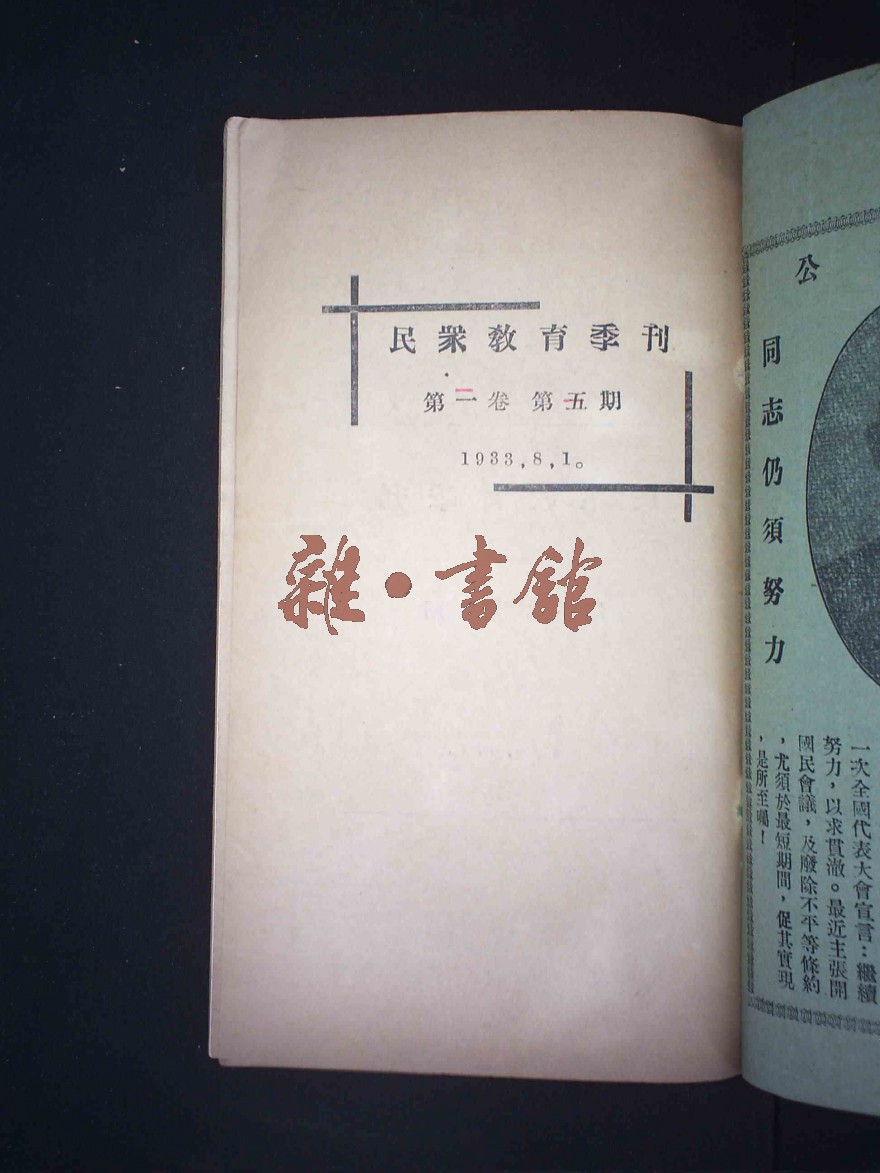 民衆教育季刊
第一卷 第五期
1933,8,1。
雜•書館
公
同志仍須努力
一次全國代表大會宣言：繼續
努力，以求貫澈。最近主張開
國民會議，及廢除不平等條約
，尤須於最短期間，促其實現
，是所至囑！